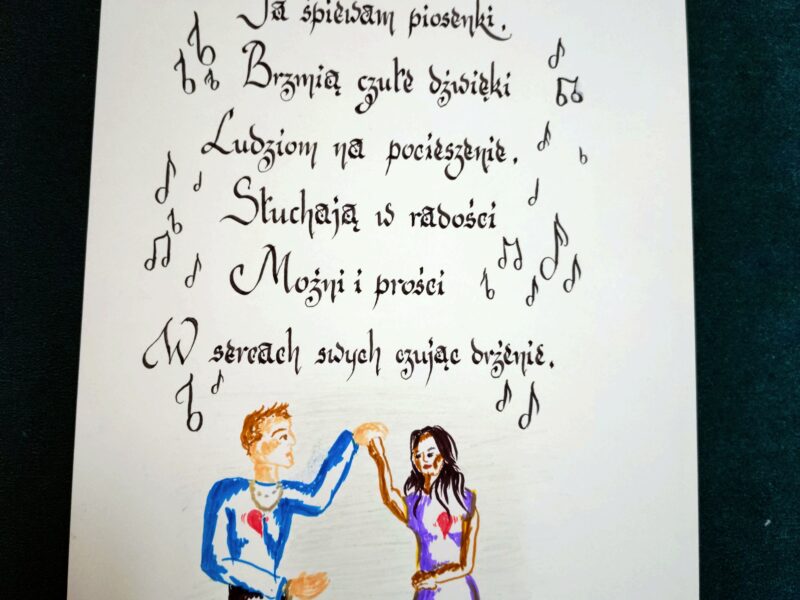 Ja śpiewam piosenki.
Brzmią czułe dźwięki
Ludziom na pocieszenie.
Słuchają w radości
Możni i prości
W sercach swych czując drżenie.